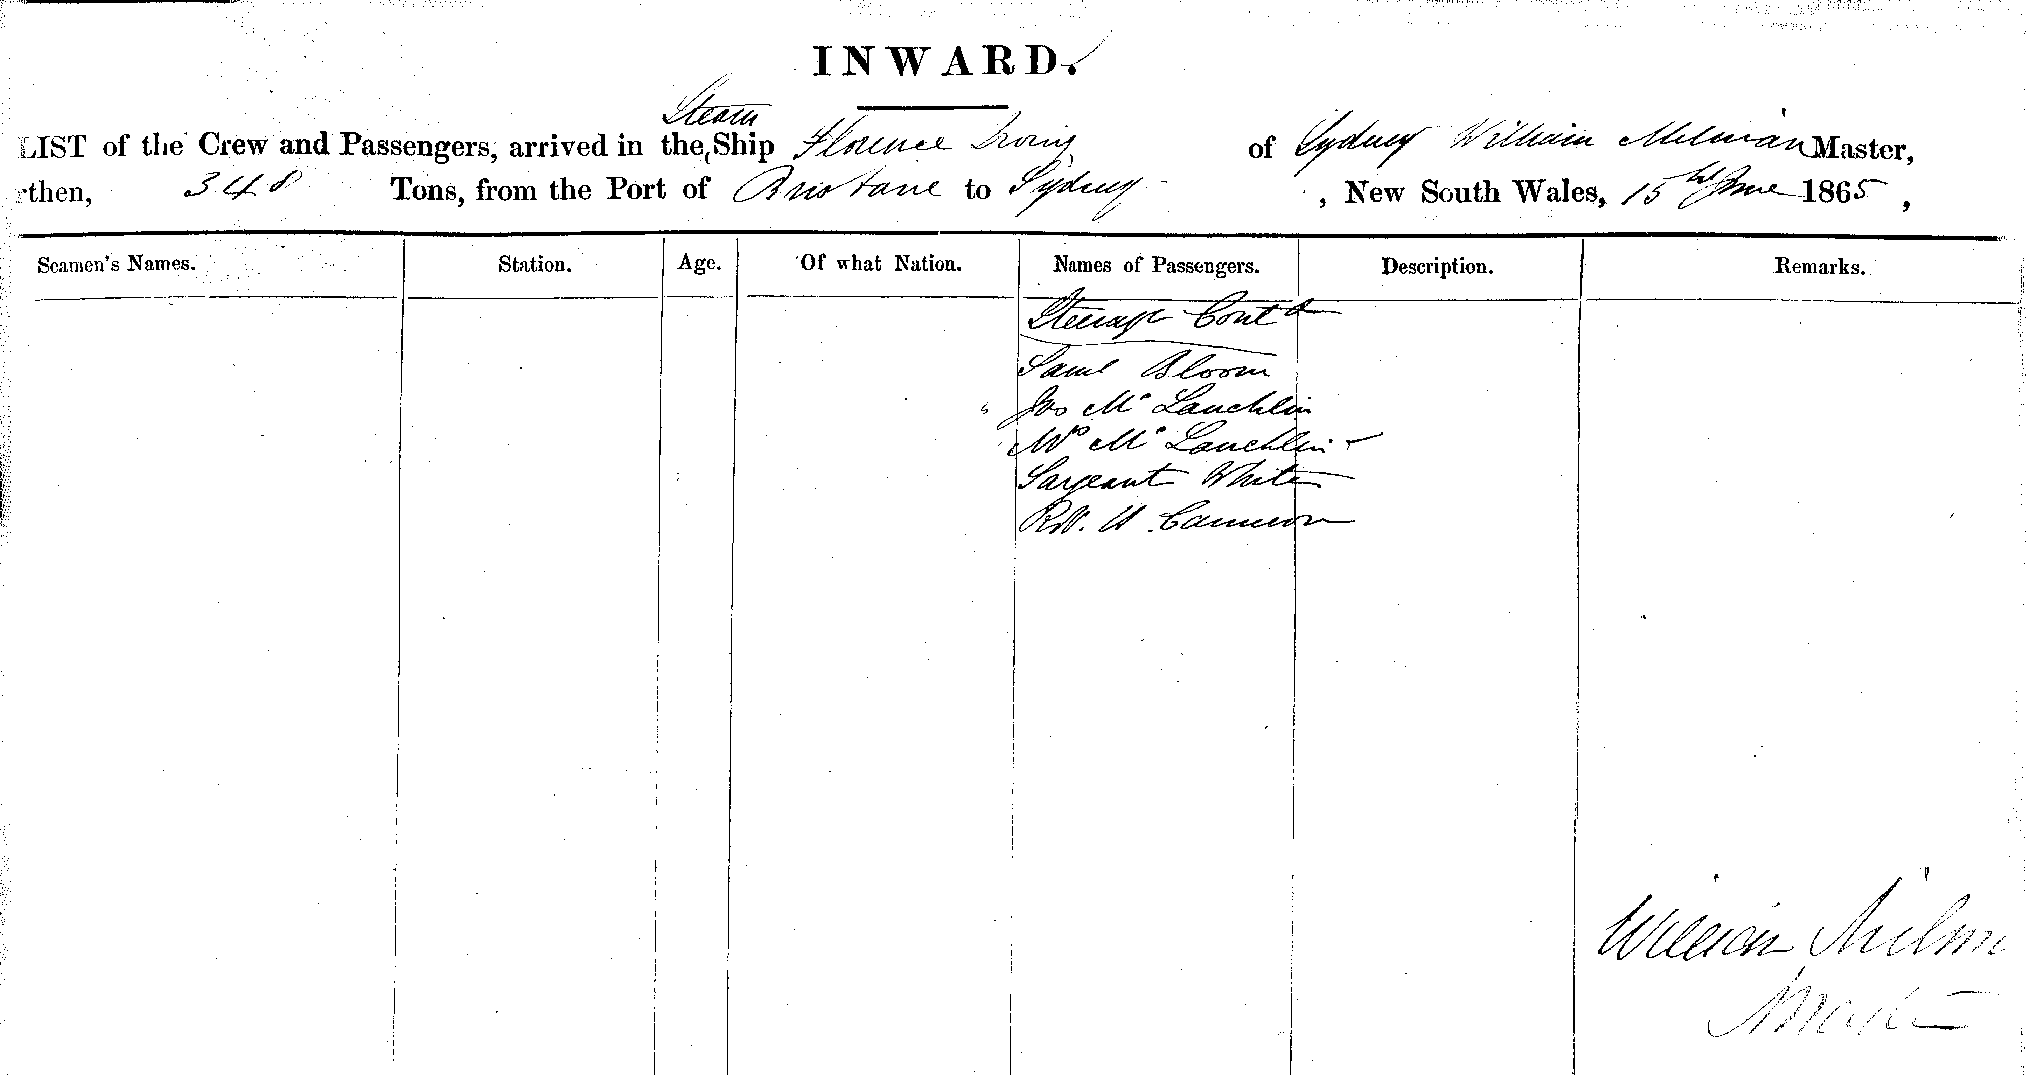 INWARD.
Steam
LIST of the Crew and Passengers, arrived in the Ship Florence Irving of Sydney William Milman Master,
rthen, 348 Tons, from the Port of Brisbane to Sydney, New South Wales, 15th June 1865,
Seamen's Names. Station. Age. Of what Nation. Names of Passengers. Description. Remarks.
Steerage Contd
Saml Bloom
Jno Mc Lauchlin
Mc Lauchlin
Sargeant White
Cameron
William Milm
Master